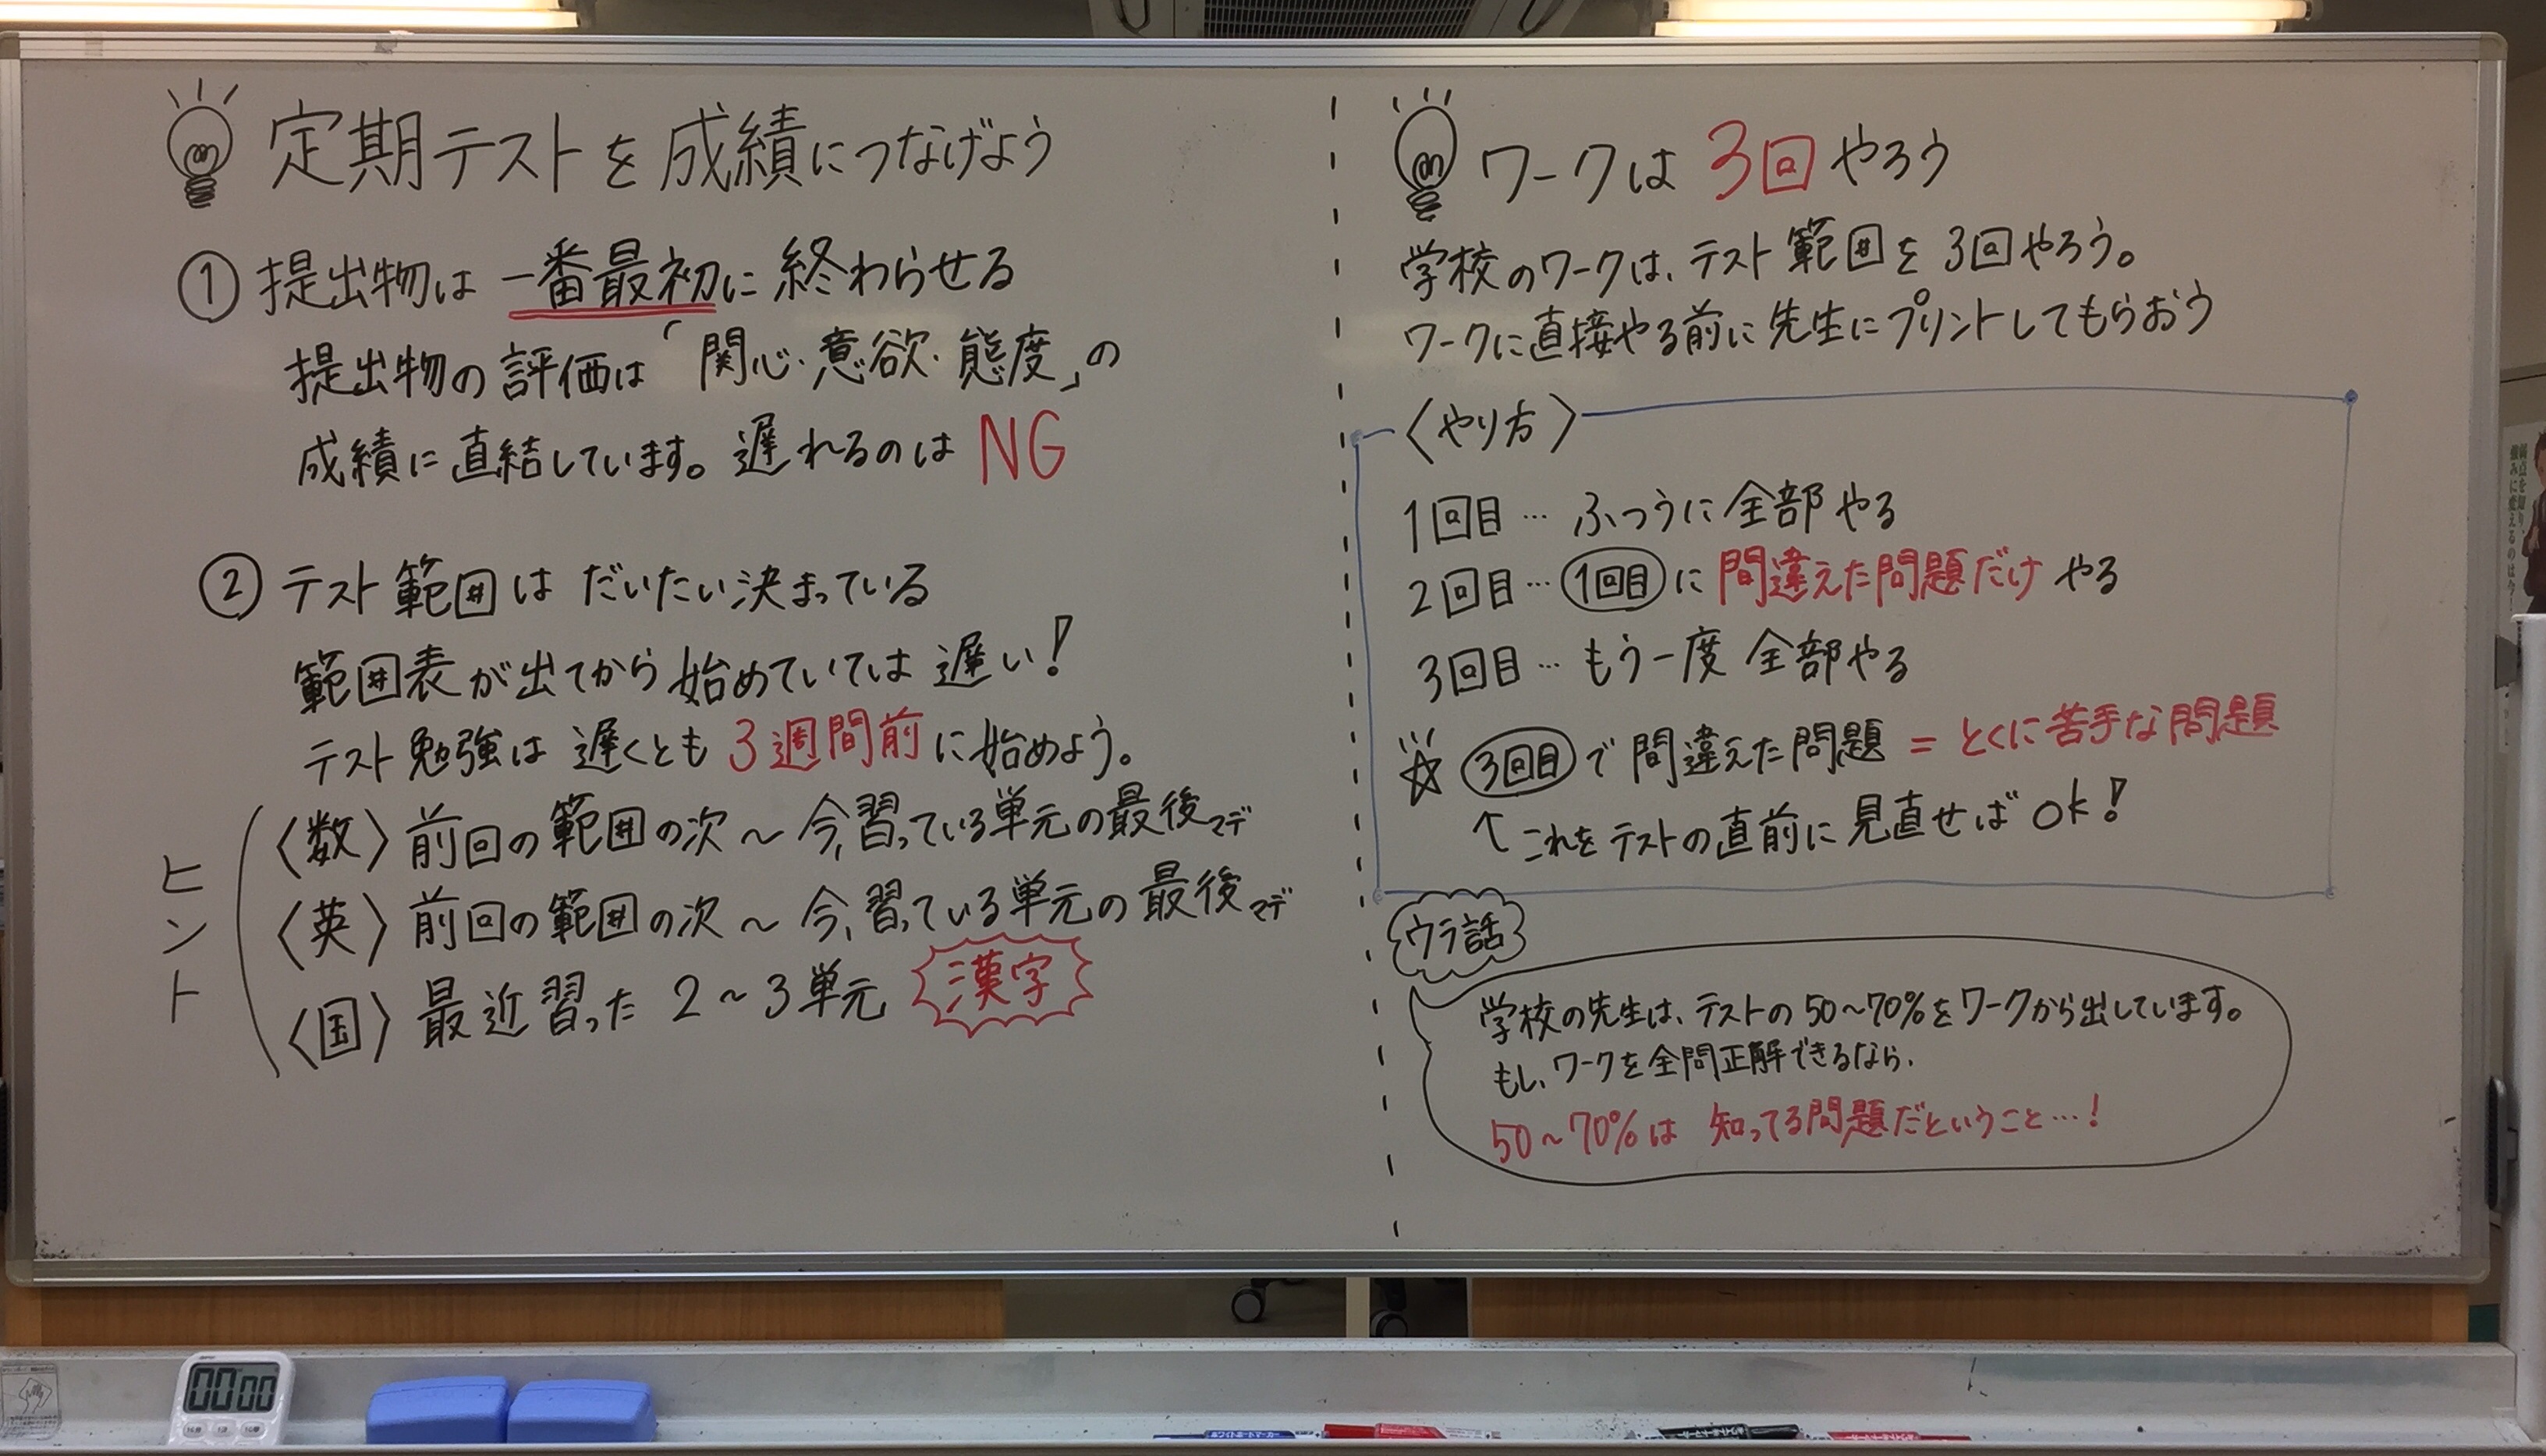 定期テストを成績につなげよう
① 提出物は一番最初に終わらせる
提出物の評価は「関心・意欲・態度」の
成績に直結しています。遅れるのはNG
② テスト範囲はだいたい決まっている
範囲表が出てから始めていては遅い!
テスト勉強は遅くとも3週間前に始めよう。
ヒント
〈数〉前回の範囲の次〜今、習っている単元の最後マデ
〈英〉前回の範囲の次〜今、習っている単元の最後マデ
〈国〉最近習った2〜3単元 漢字
ワークは3回やろう
学校のワークは、テスト範囲を3回やろう。
ワークに直接やる前に先生にプリントしてもらおう
〈やり方〉
1回目…ふつうに全部やる
2回目…1回目に間違えた問題だけやる
3回目…もう一度全部やる
☆3回目で間違えた問題=とくに苦手な問題
↑これをテストの直前に見直せばOK!
ウラ話
学校の先生は、テストの50〜70%をワークから出しています。
もし、ワークを全問正解できるなら、
50〜70%は知ってる問題だということ…!
00 00
弱点を知り、
強みに変えるのは今